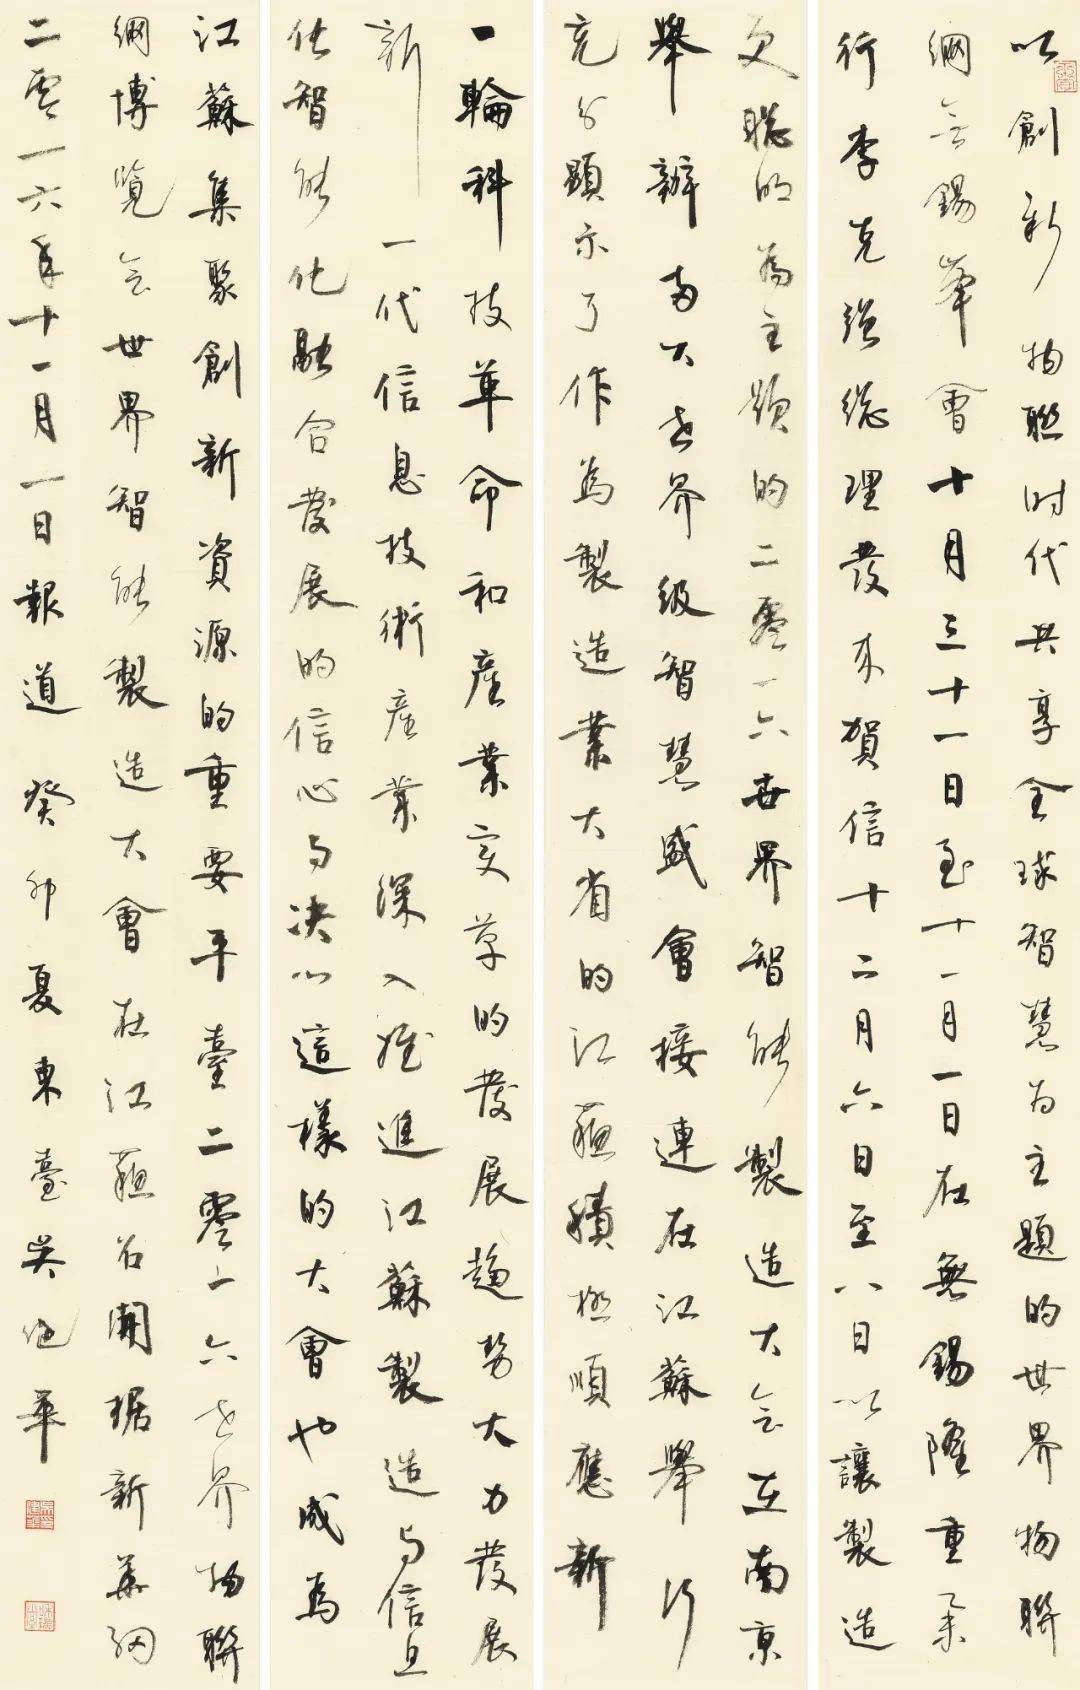 以創新物聯时代共享全球智慧为主題的世界物聯
網無錫峯會十月三十一日至十一月一日在無錫隆重舉
行李克強總理發来賀信十二月六日至八日以讓製造
更聪明為主题的二零一六世界智能製造大会在南京
舉辦两大世界级智慧盛會接連在江蘇舉行
充分顯示了作為製造業大省的江蘇積極順應新
一輪科技革命和產業变革的發展趨势大力發展
新一代信息技術產業深入推進江蘇製造与信息
化智能化融合發展的信心与决心這樣的大會也成為
江蘇集聚創新資源的重要平臺二零一六世界物聯
網博覽会世界智能製造大會在江蘇召開据新華網
二零一六年十一月一日報道 癸卯夏東臺吴建華